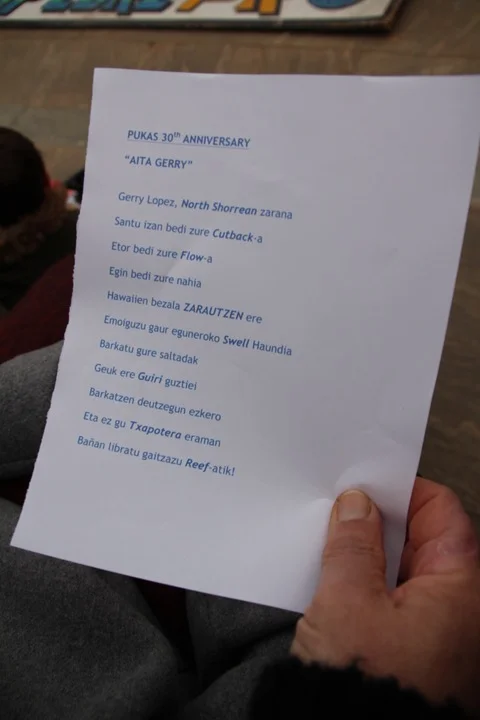 PUKAS 30th ANNIVERSARY
"AITA GERRY"
Gerry Lopez, North Shorrean zarana
Santu izan bedi zure Cutback-a
Etor bedi zure Flow-a
Egin bedi zure nahia
Hawaiien bezala ZARAUTZEN ere
Emoiguzu gaur eguneroko Swell Haundia
Barkatu gure saltadak
Geuk ere Guiri guztiei
Barkatzen deutzegun ezkero
Eta ez gu Txapotera eraman
Bañan libratu gaitzazu Reef-atik!